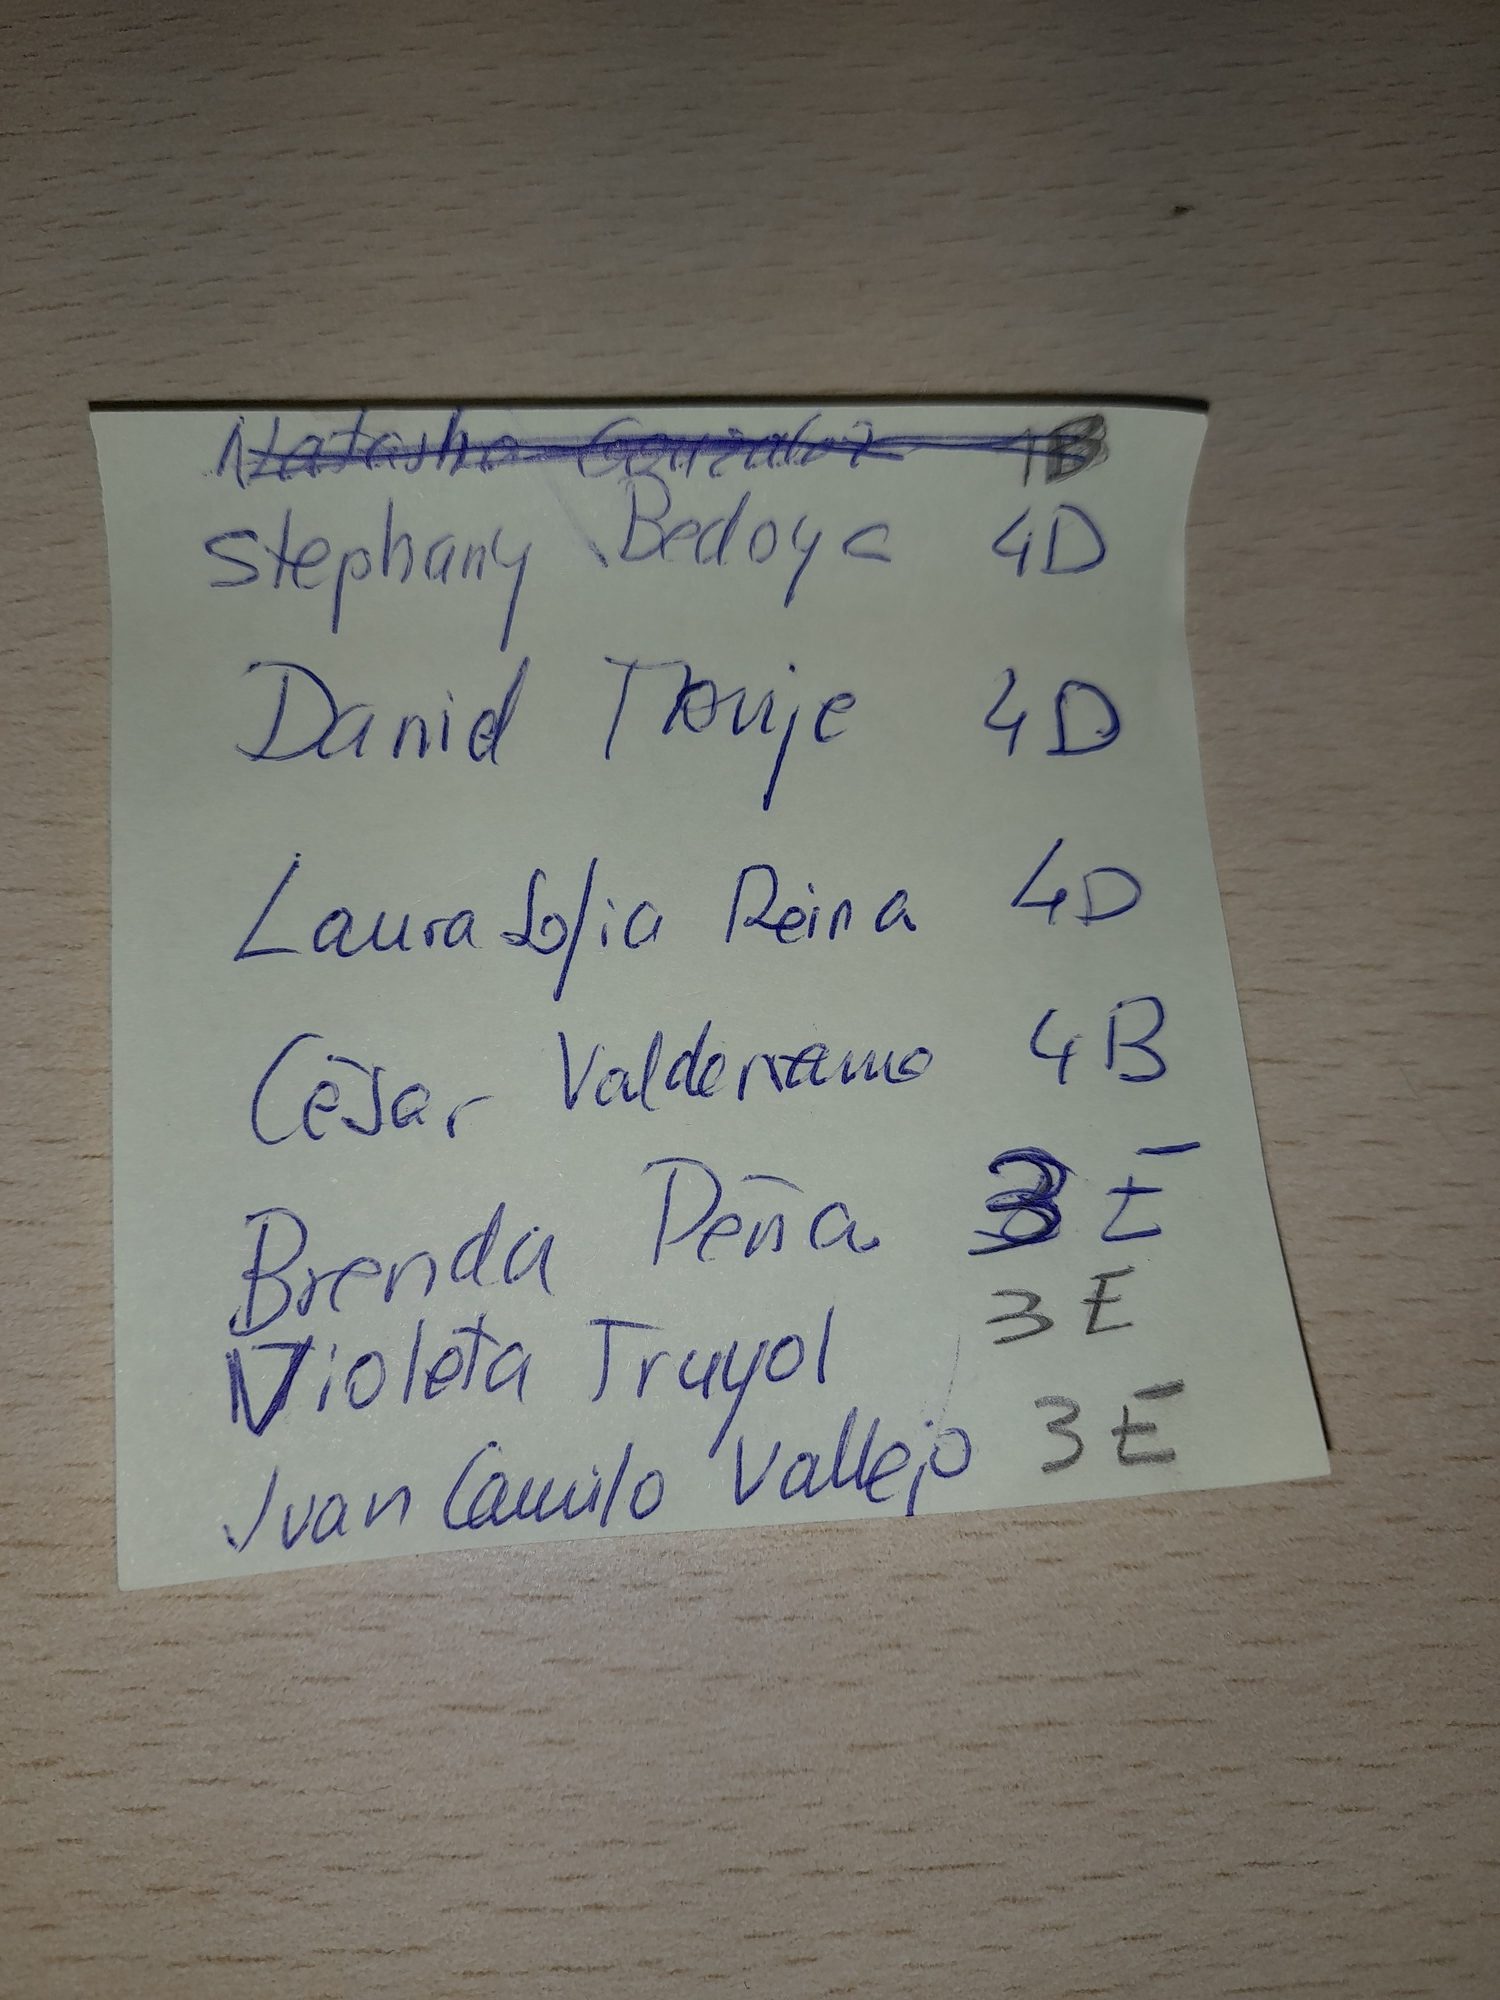 Natasha Gonzalez 1B
Stephany Bedoya 4D
David 4D
Laura Sofia Reina 4D
César Valderrama 4B
Brenda Peña 3E
Violeta Truyol 3E
Juan Camilo Vallejo 3E